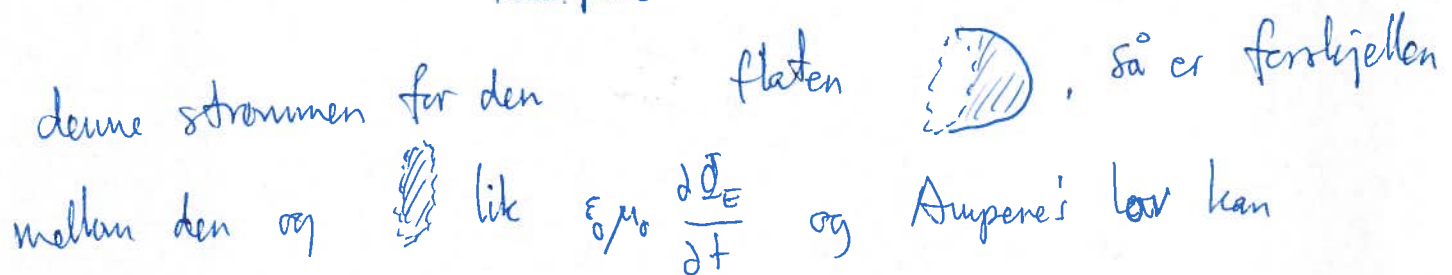 denne strømmen for den flaten , så er forskjellen
mellom den og lik ε₀μ₀ ∂Φ_E/∂t og Ampere's lov kan